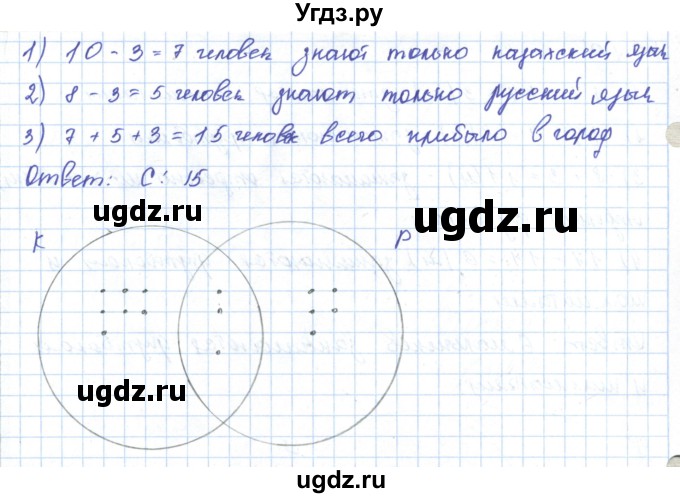 Угдз.ру
1) 10 - 3 = 7 человек знают только казахский язык
2) 8 - 3 = 5 человек знают только русский язык
3) 7 + 5 + 3 = 15 человек всего прибыло в город
Ответ: С: 15
ugdz.ru
ugdz.ru
К
Р
ugdz.ru
ugdz.ru